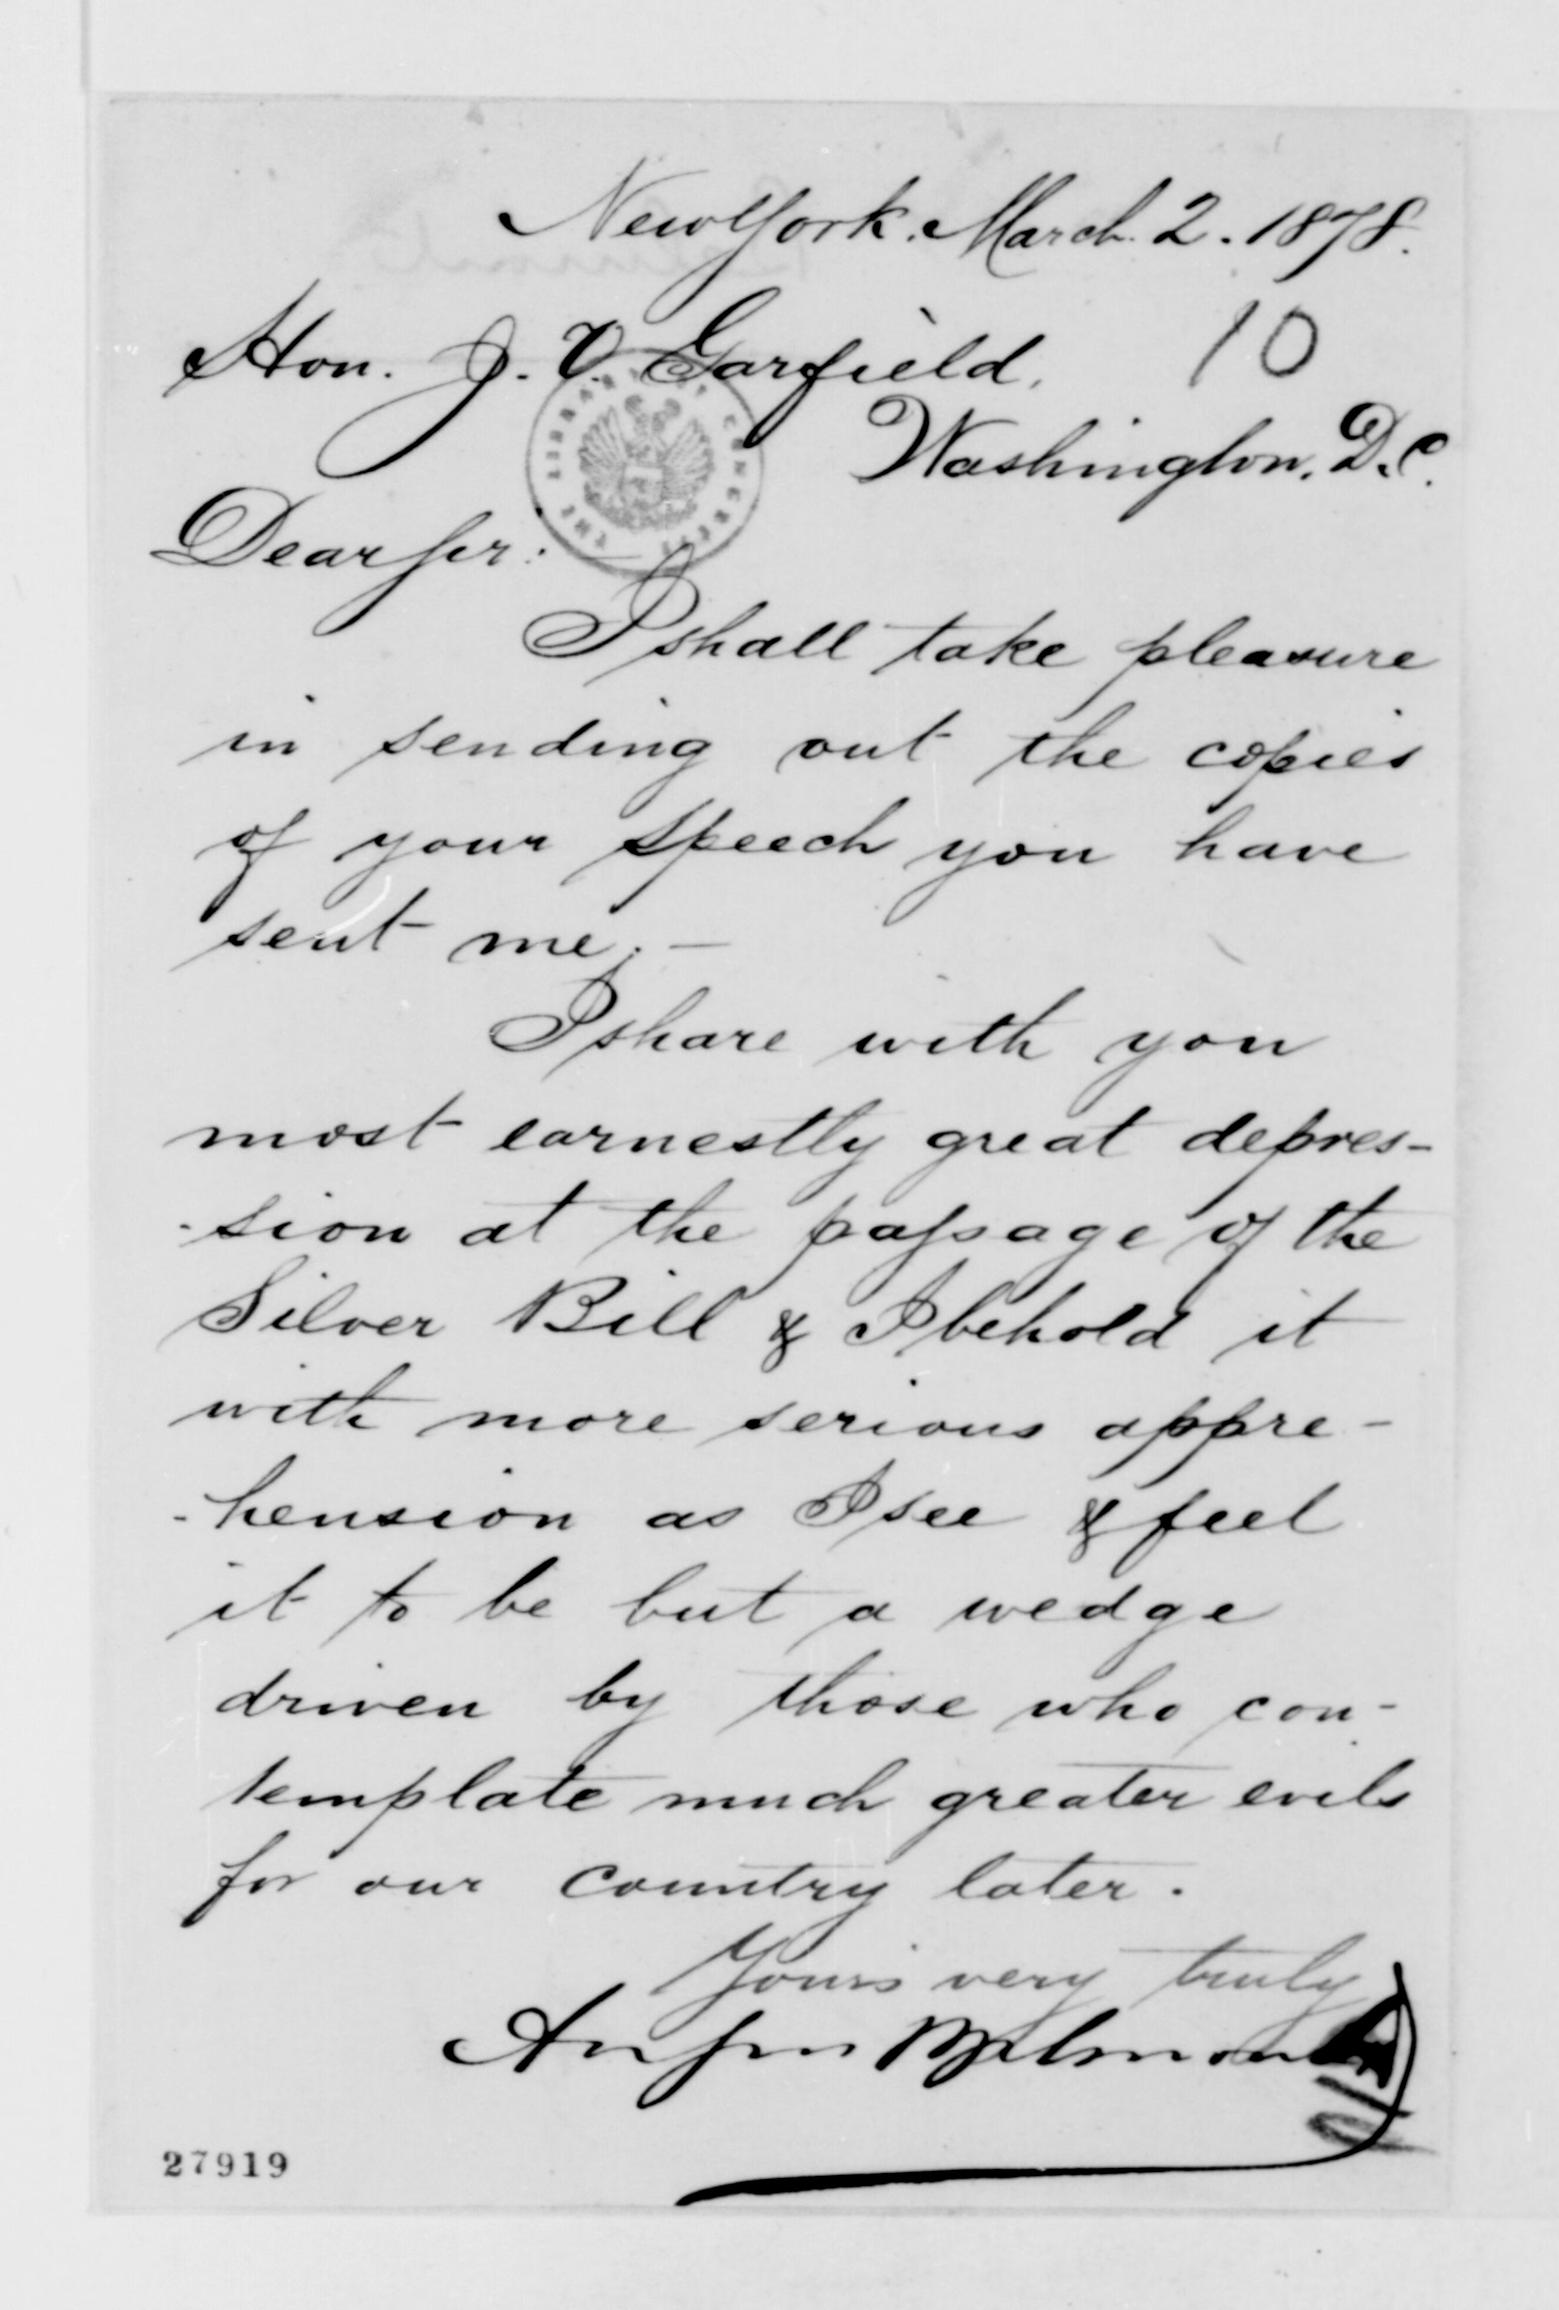 New York. March. 2. 1878.
Hon. J. V. Garfield. 10
Washington. D.C.
THE LIBRARY OF CONGRESS
Dear Sir:
I shall take pleasure
in sending out the copies
of your speech you have
sent me. —
I share with you
most earnestly great depres-
-sion at the passage of the
Silver Bill & I behold it
with more serious appre-
-hension as I see & feel
it to be but a wedge
driven by those who con-
template much greater evils
for our country later.
Yours very truly
August Belmont
27919